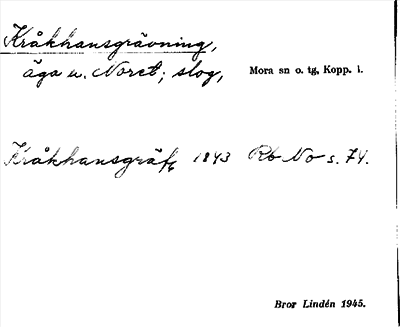 Kråkhansgrävning,
äga u. Noret; slog, Mora sn o. tg, Kopp. l.
Kråkhansgräfg 1843 Rb No s. 74.
Bror Lindén 1945.